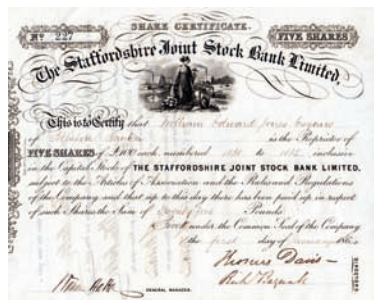 SHARE CERTIFICATE.
Nº 227
FIVE SHARES
The Staffordshire Joint Stock Bank Limited,
This is to Certify that William Edward Jones Esquire
of is the Proprietor of
FIVE SHARES of £100 each, numbered to inclusive
in the Capital Stock of THE STAFFORDSHIRE JOINT STOCK BANK LIMITED,
subject to the Articles of Association and the Rules and Regulations
of the Company and that up to this day there has been paid up in respect
of such Shares the Sum of Twenty five Pounds
Given under the Common Seal of the Company
the first day of January
Thomas Davis
GENERAL MANAGER.
DIRECTORS